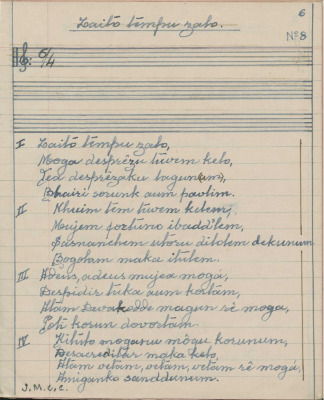 6
Laitó tempu zalo.
Nº 8
6/4
I Laitó tempu zalo,
Moga desprézu tuvem kelo,
Tea desprézaku
sorunk aum pavlim.
II Khuim tem tuvem kelem,
Mujem fortuno ibaddlem,
utoru ditolem dekunum
Bogolam maka itulem.
III Adeus, adeus mujea mogá,
Despidir tuka aum kortám,
Atám Devakodde magun sé moga,
korun dovortám.
IV Kitito mogaruv mógu korunum,
Desacreditár maka keló,
Atám vetám, vetám, vetám sé mogá,
Amiganko sanddunum.
J.M.C.C.